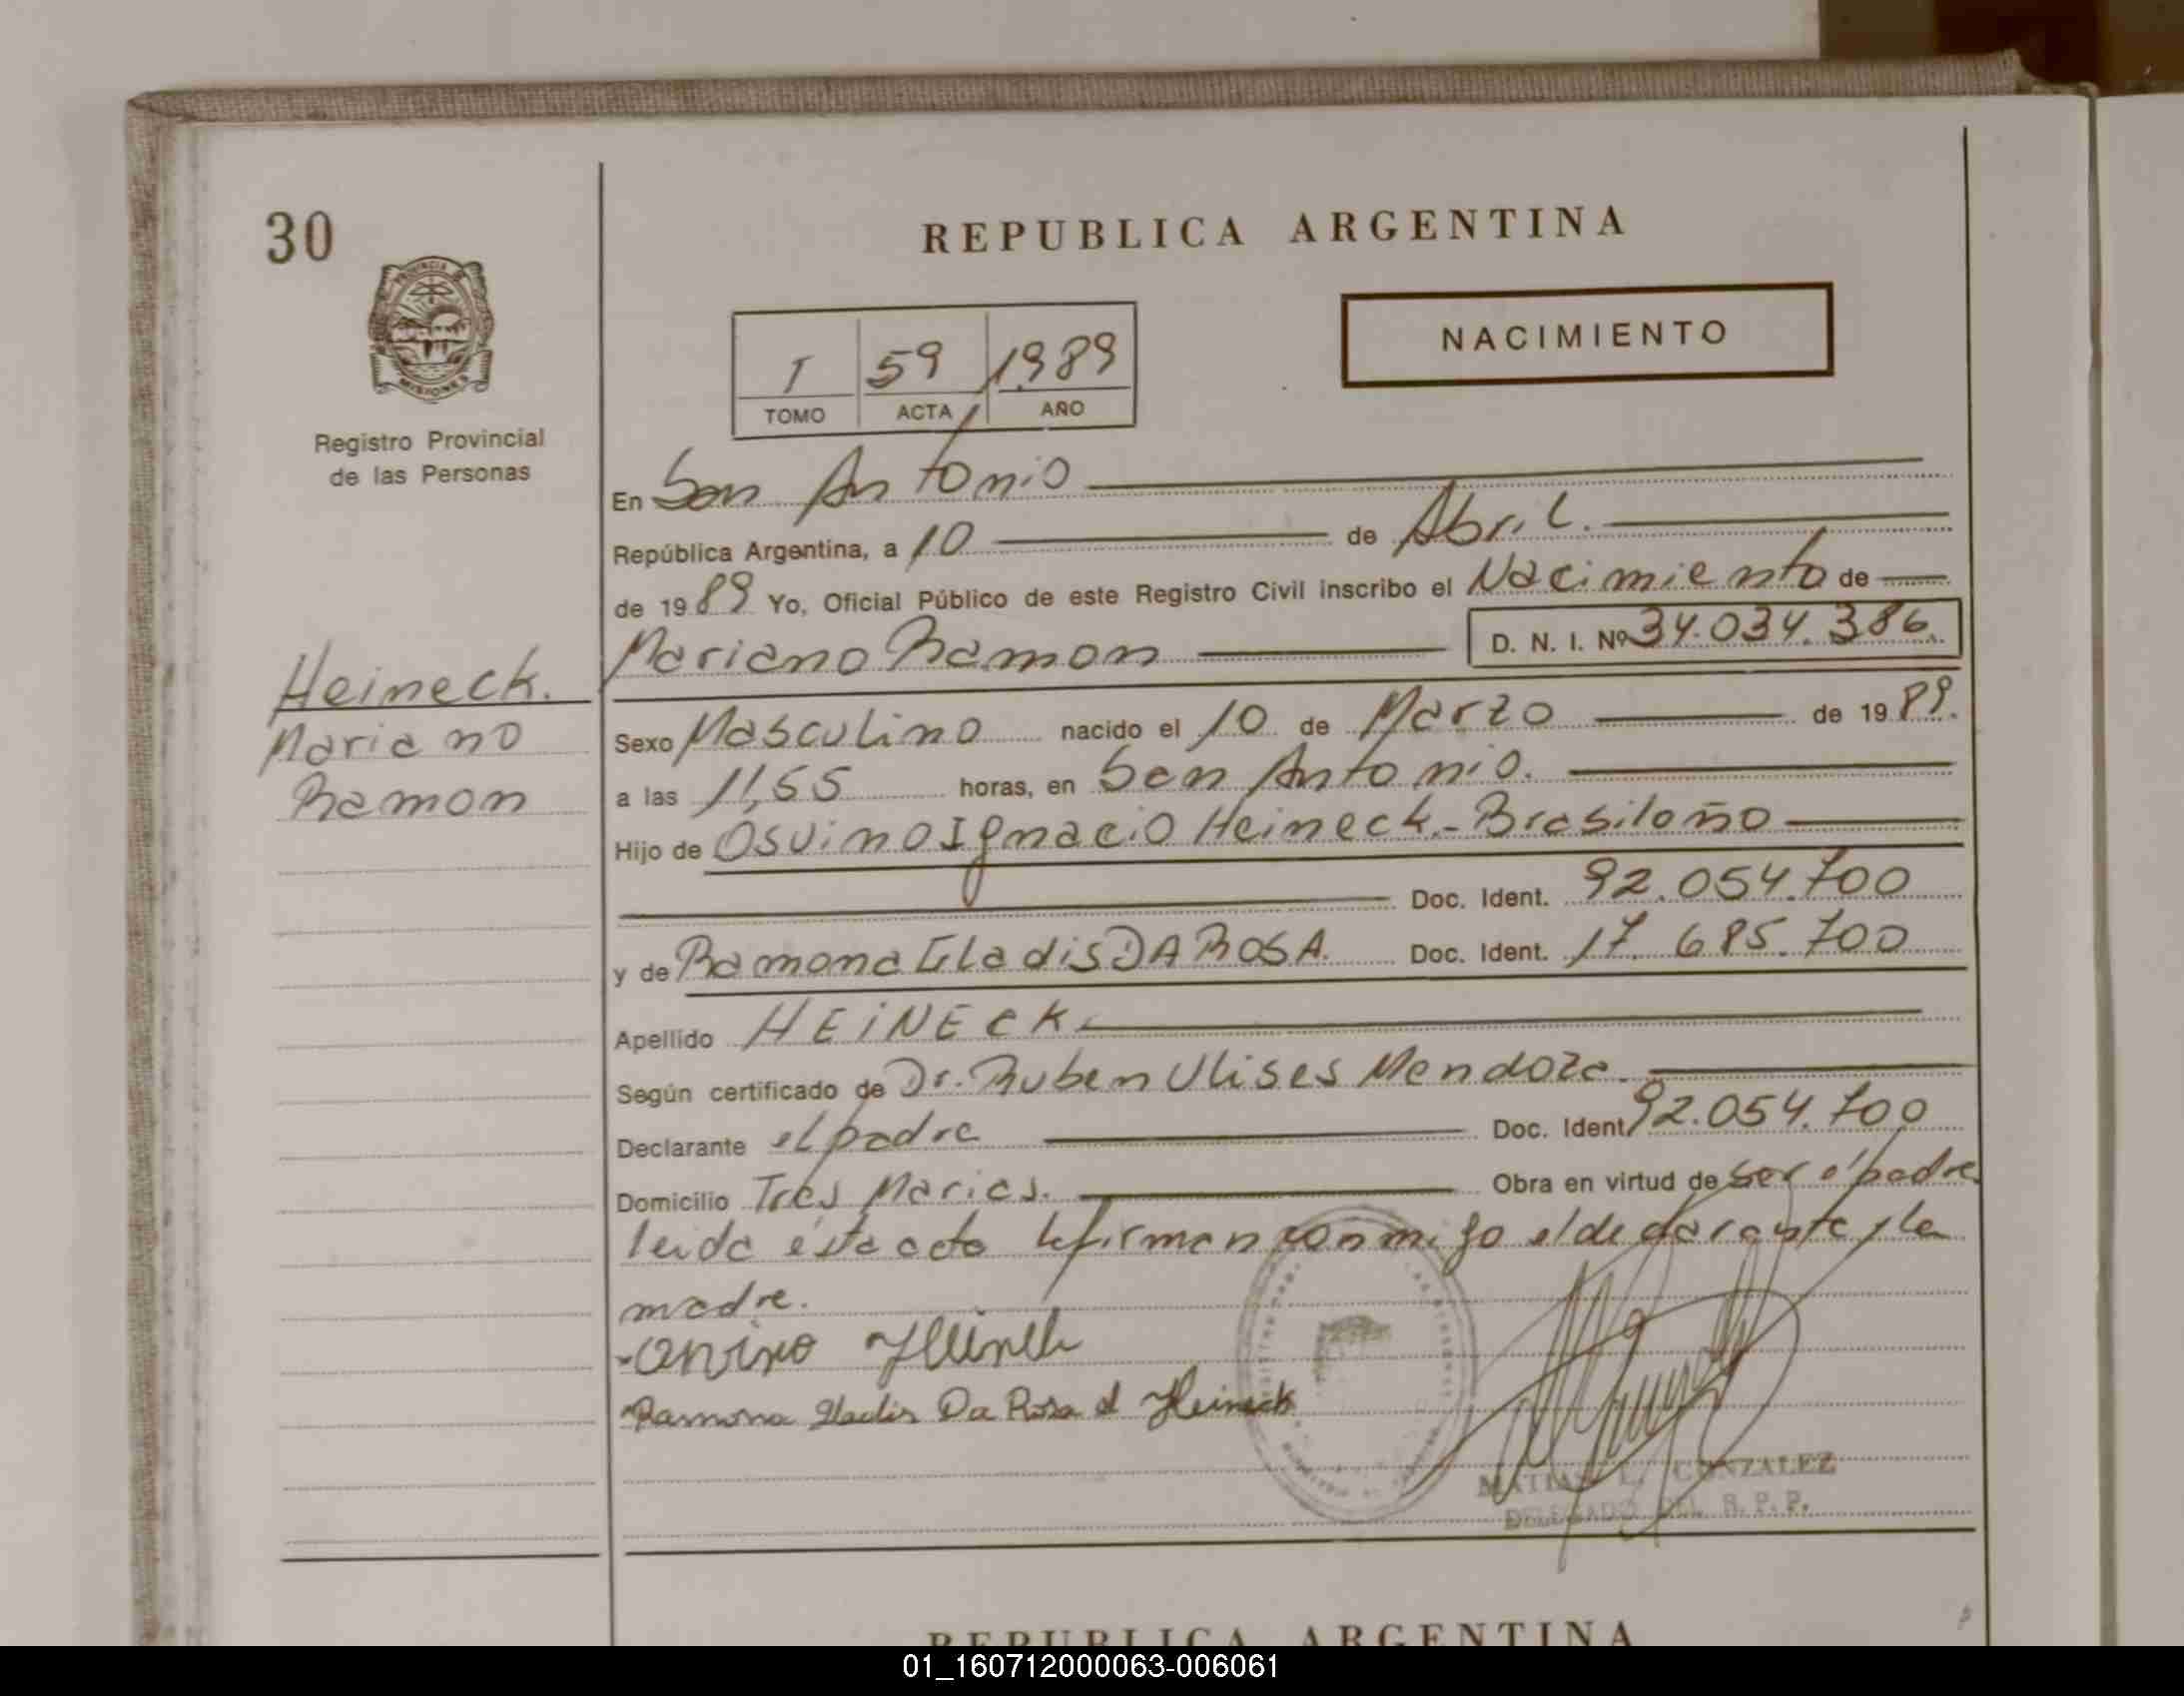 30
REPUBLICA ARGENTINA
NACIMIENTO
I 59 1989
TOMO ACTA AÑO
MISIONES
Registro Provincial
de las Personas
En San Antonio
República Argentina, a 10 de Abril.
de 1989 Yo, Oficial Público de este Registro Civil inscribo el Nacimiento de
Mariano Ramon D. N. I. Nº 34.034.386.
Heineck.
Mariano
Ramon
Sexo Masculino nacido el 10 de Marzo de 1989.
a las 11,55 horas, en San Antonio.
Hijo de Osvino Ignacio Heineck - Brasileño
Doc. Ident. 92.054.700
y de Ramona Gladis DA ROSA. Doc. Ident. 17.685.700
Apellido HEINECK
Según certificado de Dr. Ruben Ulises Mendoza
Declarante el padre Doc. Ident. 92.054.700
Domicilio Tres Marias. Obra en virtud de ser el padre
leida ésta acta la firman conmigo el declarante y la
madre.
Heineck
Ramona Gladis Da Rosa d Heineck
MATIAS L. GONZALEZ
DELEGADO DEL R. P. P.
REPUBLICA ARGENTINA
01_160712000063-006061